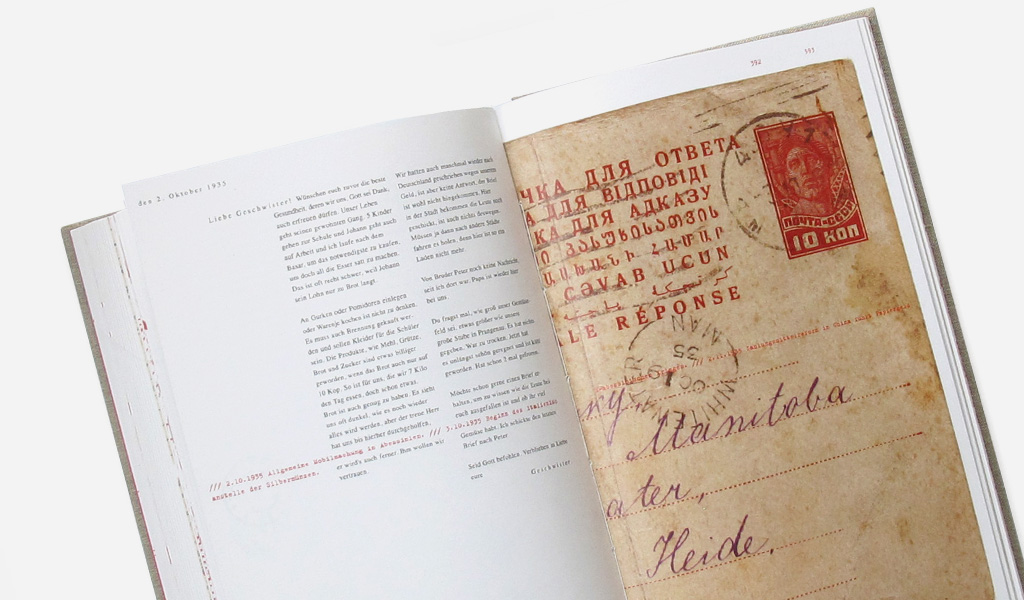 den 2. Oktober 1935
Liebe Geschwister! Wünschen euch zuvor die beste
Gesundheit, deren wir uns, Gott sei Dank,
auch erfreuen dürfen. Unser Leben
geht seinen gewohnten Gang. 5 Kinder
gehen zur Schule und Johann geht auch
auf Arbeit und ich laufe nach dem
Basar, um das notwendigste zu kaufen,
um doch all die Esser satt zu machen.
Das ist oft recht schwer, weil Johann
sein Lohn nur zu Brot langt.
An Gurken oder Pomidoren einlegen
oder Warenje kochen ist nicht zu denken.
Es muss auch Brennung gekauft wer-
den und sollen Kleider für die Schüler
sein. Die Produkte, wie Mehl, Grütze,
Brot und Zucker sind etwas billiger
geworden, wenn das Brot auch nur auf
10 Kop. So ist für uns, die wir 7 Kilo
den Tag essen, doch schon etwas.
Brot ist auch genug zu haben. Es sieht
uns oft dunkel, wie es noch wieder
alles wird werden, aber der treue Herr
hat uns bis hierher durchgeholfen,
er wird's auch ferner. Ihm wollen wir
vertrauen.
Wir hatten auch manchmal wieder nach
Deutschland geschrieben wegen unserm
Geld, ist aber keine Antwort, der Brief
ist wohl nicht hingekommen. Hier
in der Stadt bekommen die Leute auch
geschickt, ist auch nichts deswegen.
Müssen ja dann nach andere Städte
fahren es holen, denn hier ist so ein
Laden nicht mehr.
Von Bruder Peter noch keine Nachricht,
seit ich dort war. Papa ist wieder hier
bei uns.
Du fragst mal, wie groß unser Gemüse-
feld sei, etwas größer wie unsere
große Stube in Prangenau. Es hat nichts
gegeben. War zu trocken. Jetzt hat
es unlängst schön geregnet und ist kühl
geworden. Hat schon 2 mal gefroren.
Möchte schon gerne einen Brief er-
halten, um zu wissen wie die Ernte bei
euch ausgefallen ist und ob ihr viel
Gemüse habt. Ich schickte den letzten
Brief nach Peter.
Seid Gott befohlen. Verbleiben in Liebe
eure
Geschwister
/// 2.10.1935 Allgemeine Mobilmachung in Abessinien. /// 3.10.1935 Beginn des Italienisch
anstelle der Silbermünzen.
392
393
ЧКА ДЛЯ ОТВЕТА
А ДЛЯ ВІДПОВІДІ
КА ДЛЯ АДКАЗУ
ՊԱՏԱՍԽԱՆԻ ՀԱՄԱՐ
CƏVAB UCUN
LE RÉPONSE
ПОЧТА СССР
10 КОП
WHITEWATER
OC 9
35
MAN
ky,
Manitoba
ater,
Heide.